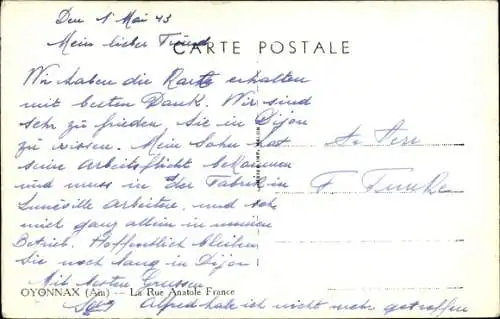 Den 1 Mai 43
Mein lieber Freund
CARTE POSTALE
Wir haben die Karte erhalten
mit besten Dank. Wir sind
sehr zu frieden, Sie in Dijon
zu wissen. Mein Sohn hat
seine Arbeitspflicht bekommen
und muss in der Fabrik in
Lunéville Arbeiten, und
mich ganz allein in meinen
Betrieb. Hoffentlich bleiben
Sie noch lang in Dijon
Mit besten Grussen
Alfred habe ich nicht mehr getroffen
An Herr
F Funke
OYONNAX (Ain) — La Rue Anatole France